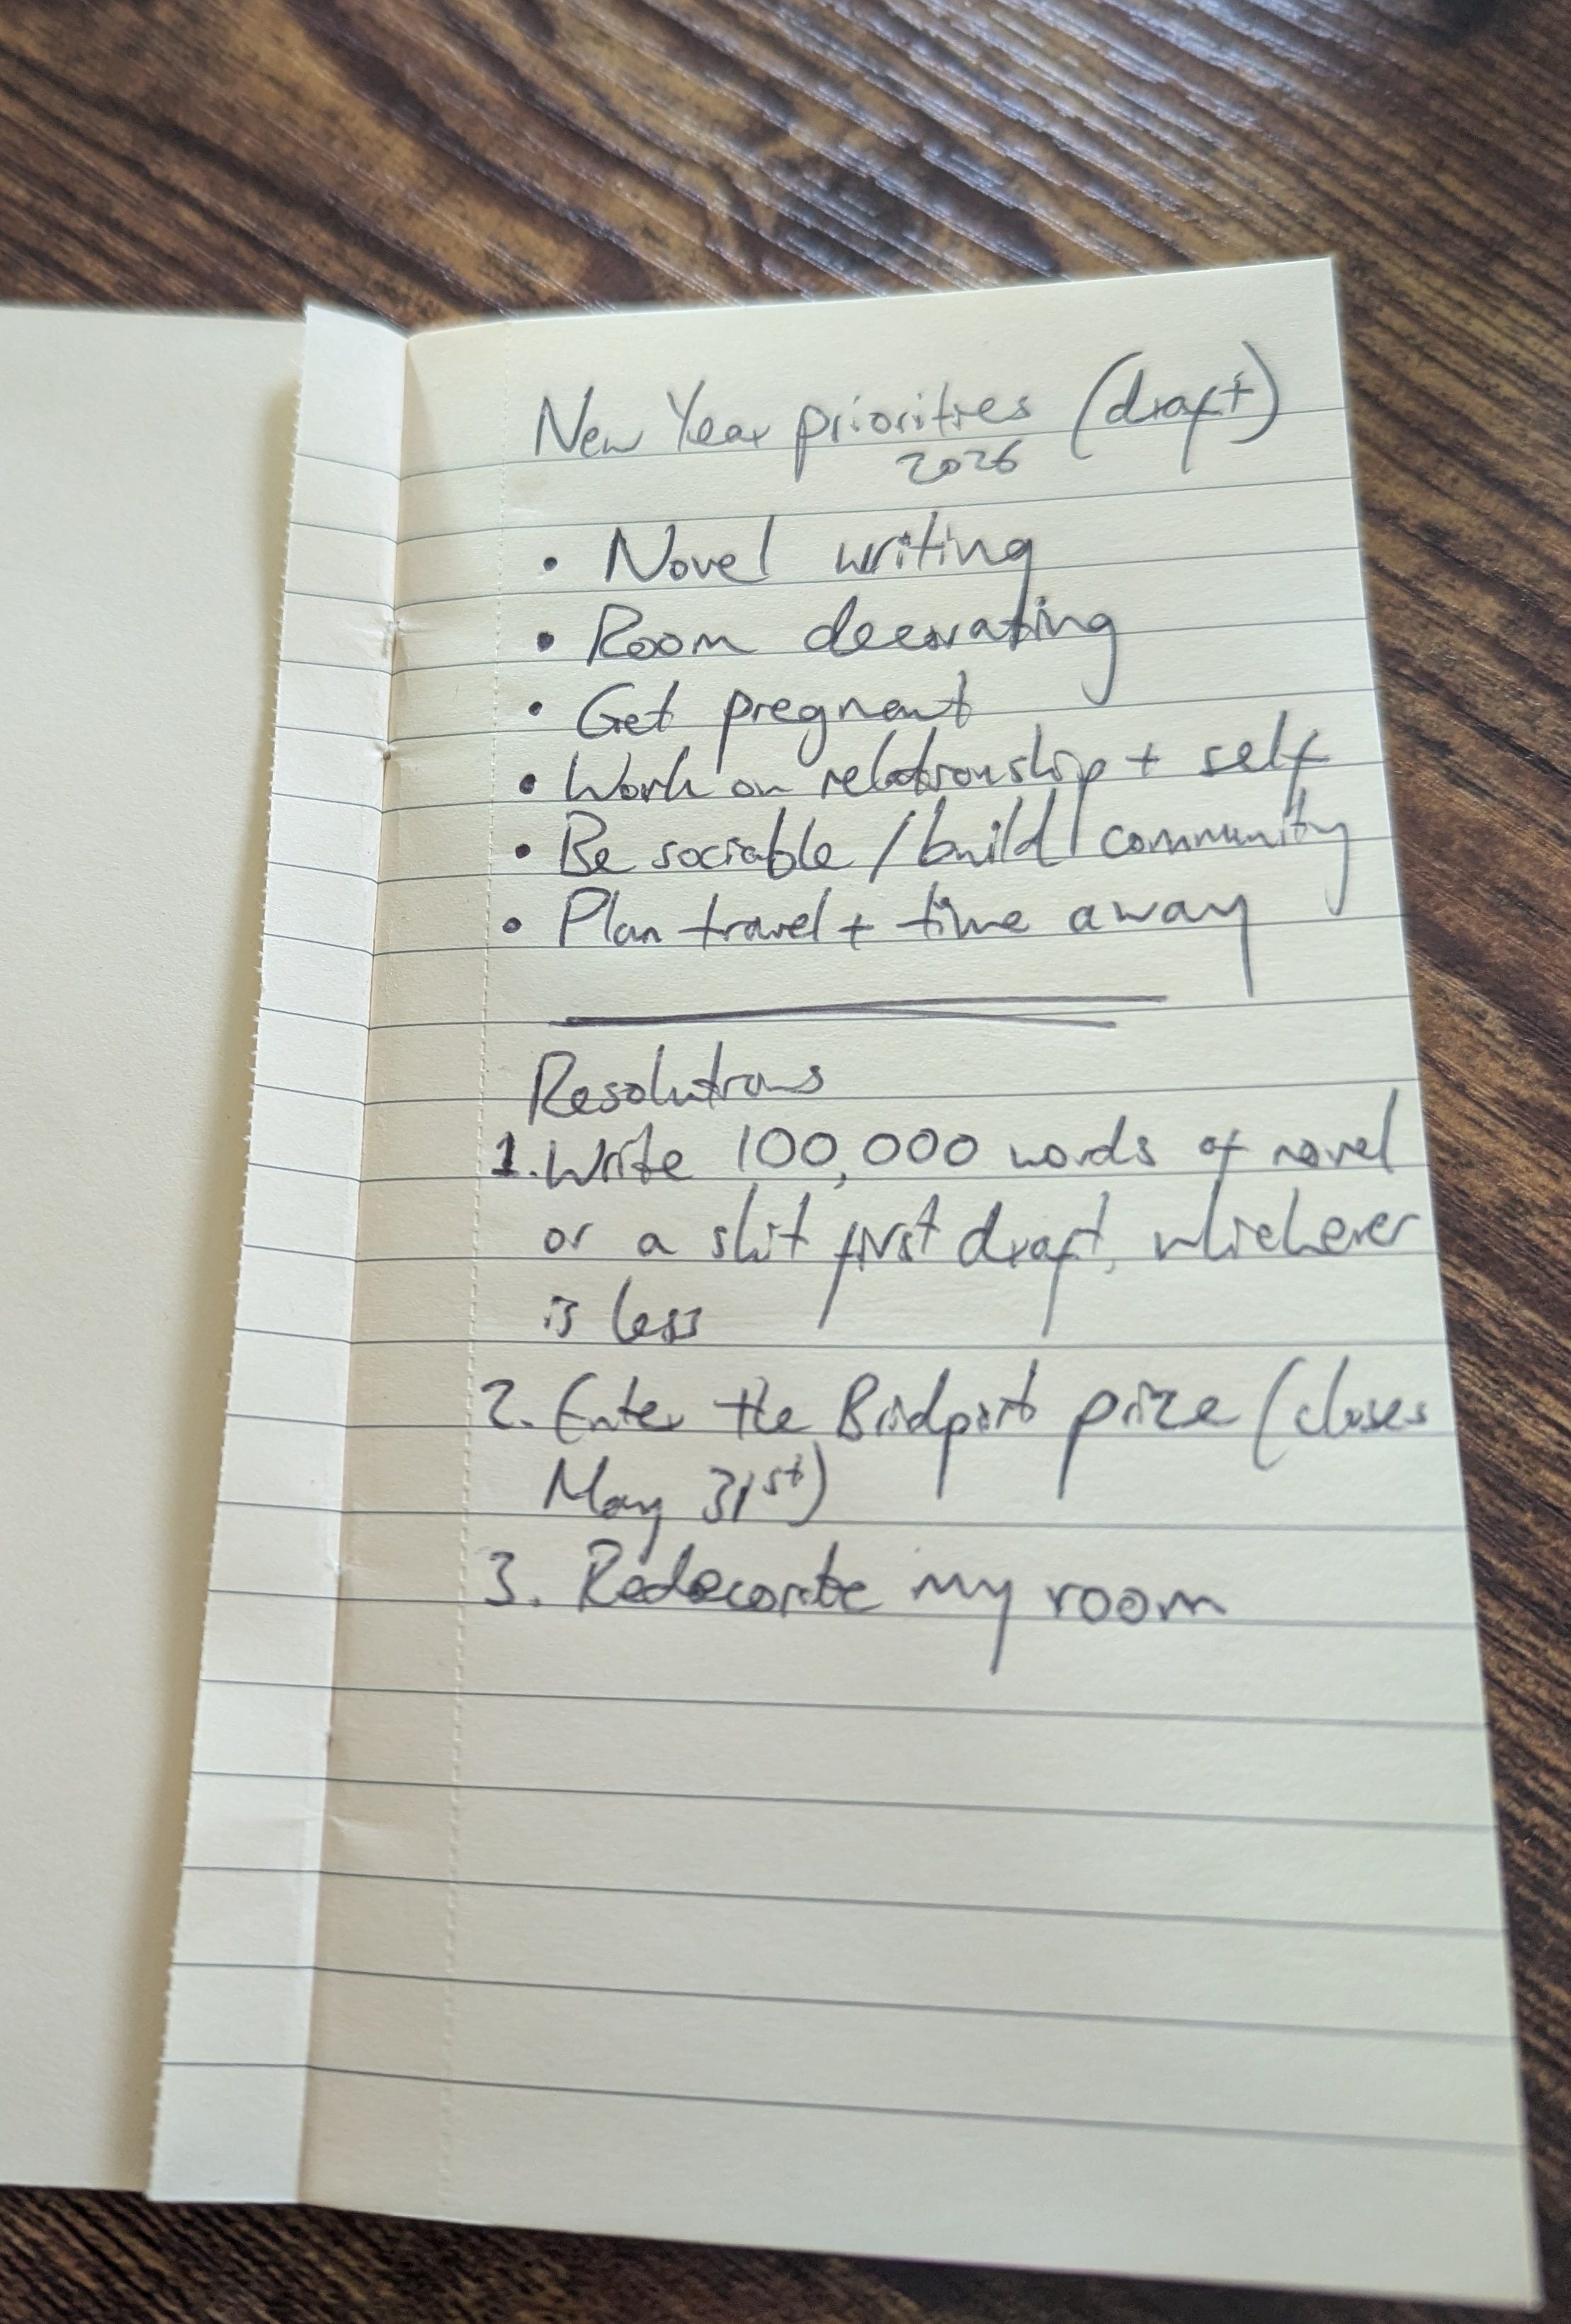 New Year priorities (draft)
2026
• Novel writing
• Room decorating
• Get pregnant
• Work on relationship + self
• Be sociable / build community
• Plan travel + time away
Resolutions
1. Write 100,000 words of novel
or a shit first draft, whichever
is less
2. Enter the Bridport prize (closes
May 31st)
3. Redecorate my room